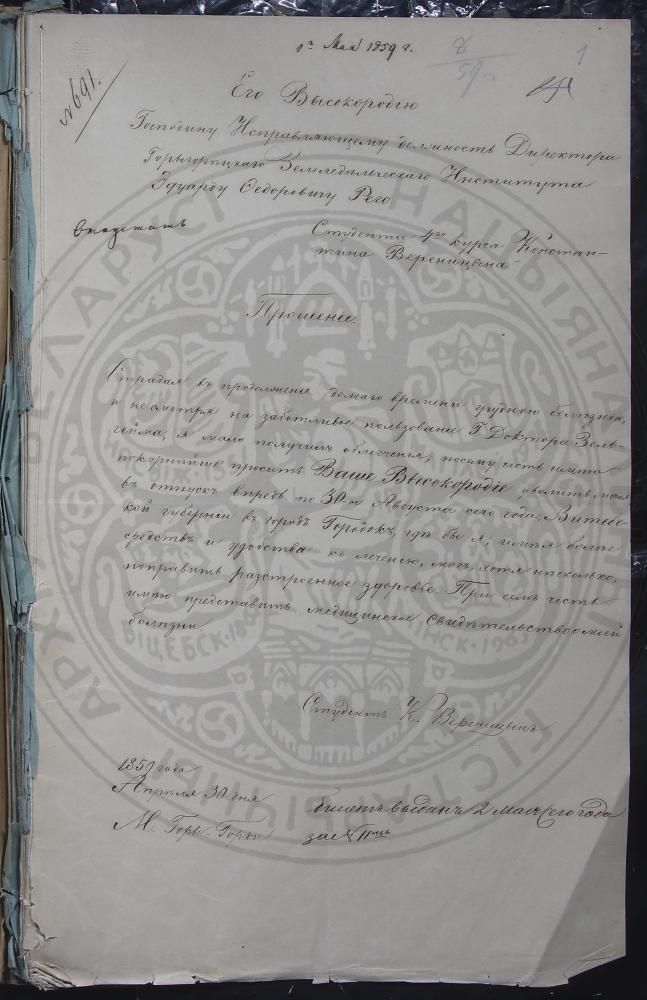 1го Мая 1859 г.
8/59
1
№ 691.
Его Высокородію
Господину Исправляющему должность Директора
Горыгорѣцкаго Земледѣльческаго Института
Эдуарду Ѳедоровичу Рего
Студента 4го курса Констан-
тина Вереницына
Прошеніе.
Страдая въ продолженіе долгаго времени грудною болѣзнію,
и не смотря на заботливое пользованіе Г. Доктора Зель-
гейма, я мало получилъ облегченія, посему честь имѣю
покорнѣйше просить Ваше Высокородіе уволить меня
въ отпускъ впредь по 30е Августа сего года, Витебс-
кой губерніи въ городъ Городокъ, гдѣ бы я, имѣя болѣе
средствъ и удобства къ леченію, могъ, хотя нѣсколько,
поправить разстроенное здоровье. При семъ честь
имѣю представить медицинское свидѣтельство о моей
болѣзни.
Студентъ К. Вереницынъ
1859 года
Апрѣля 30 дня
М. Горы-Горки
билетъ выданъ 2 Мая сего года
за № 11мъ
БЕЛАРУСІ
НАЦЫЯНА
АРХІ
ГІСТАРЫЧНЫ
ВІЦЕБСК-18
МІНСК-19